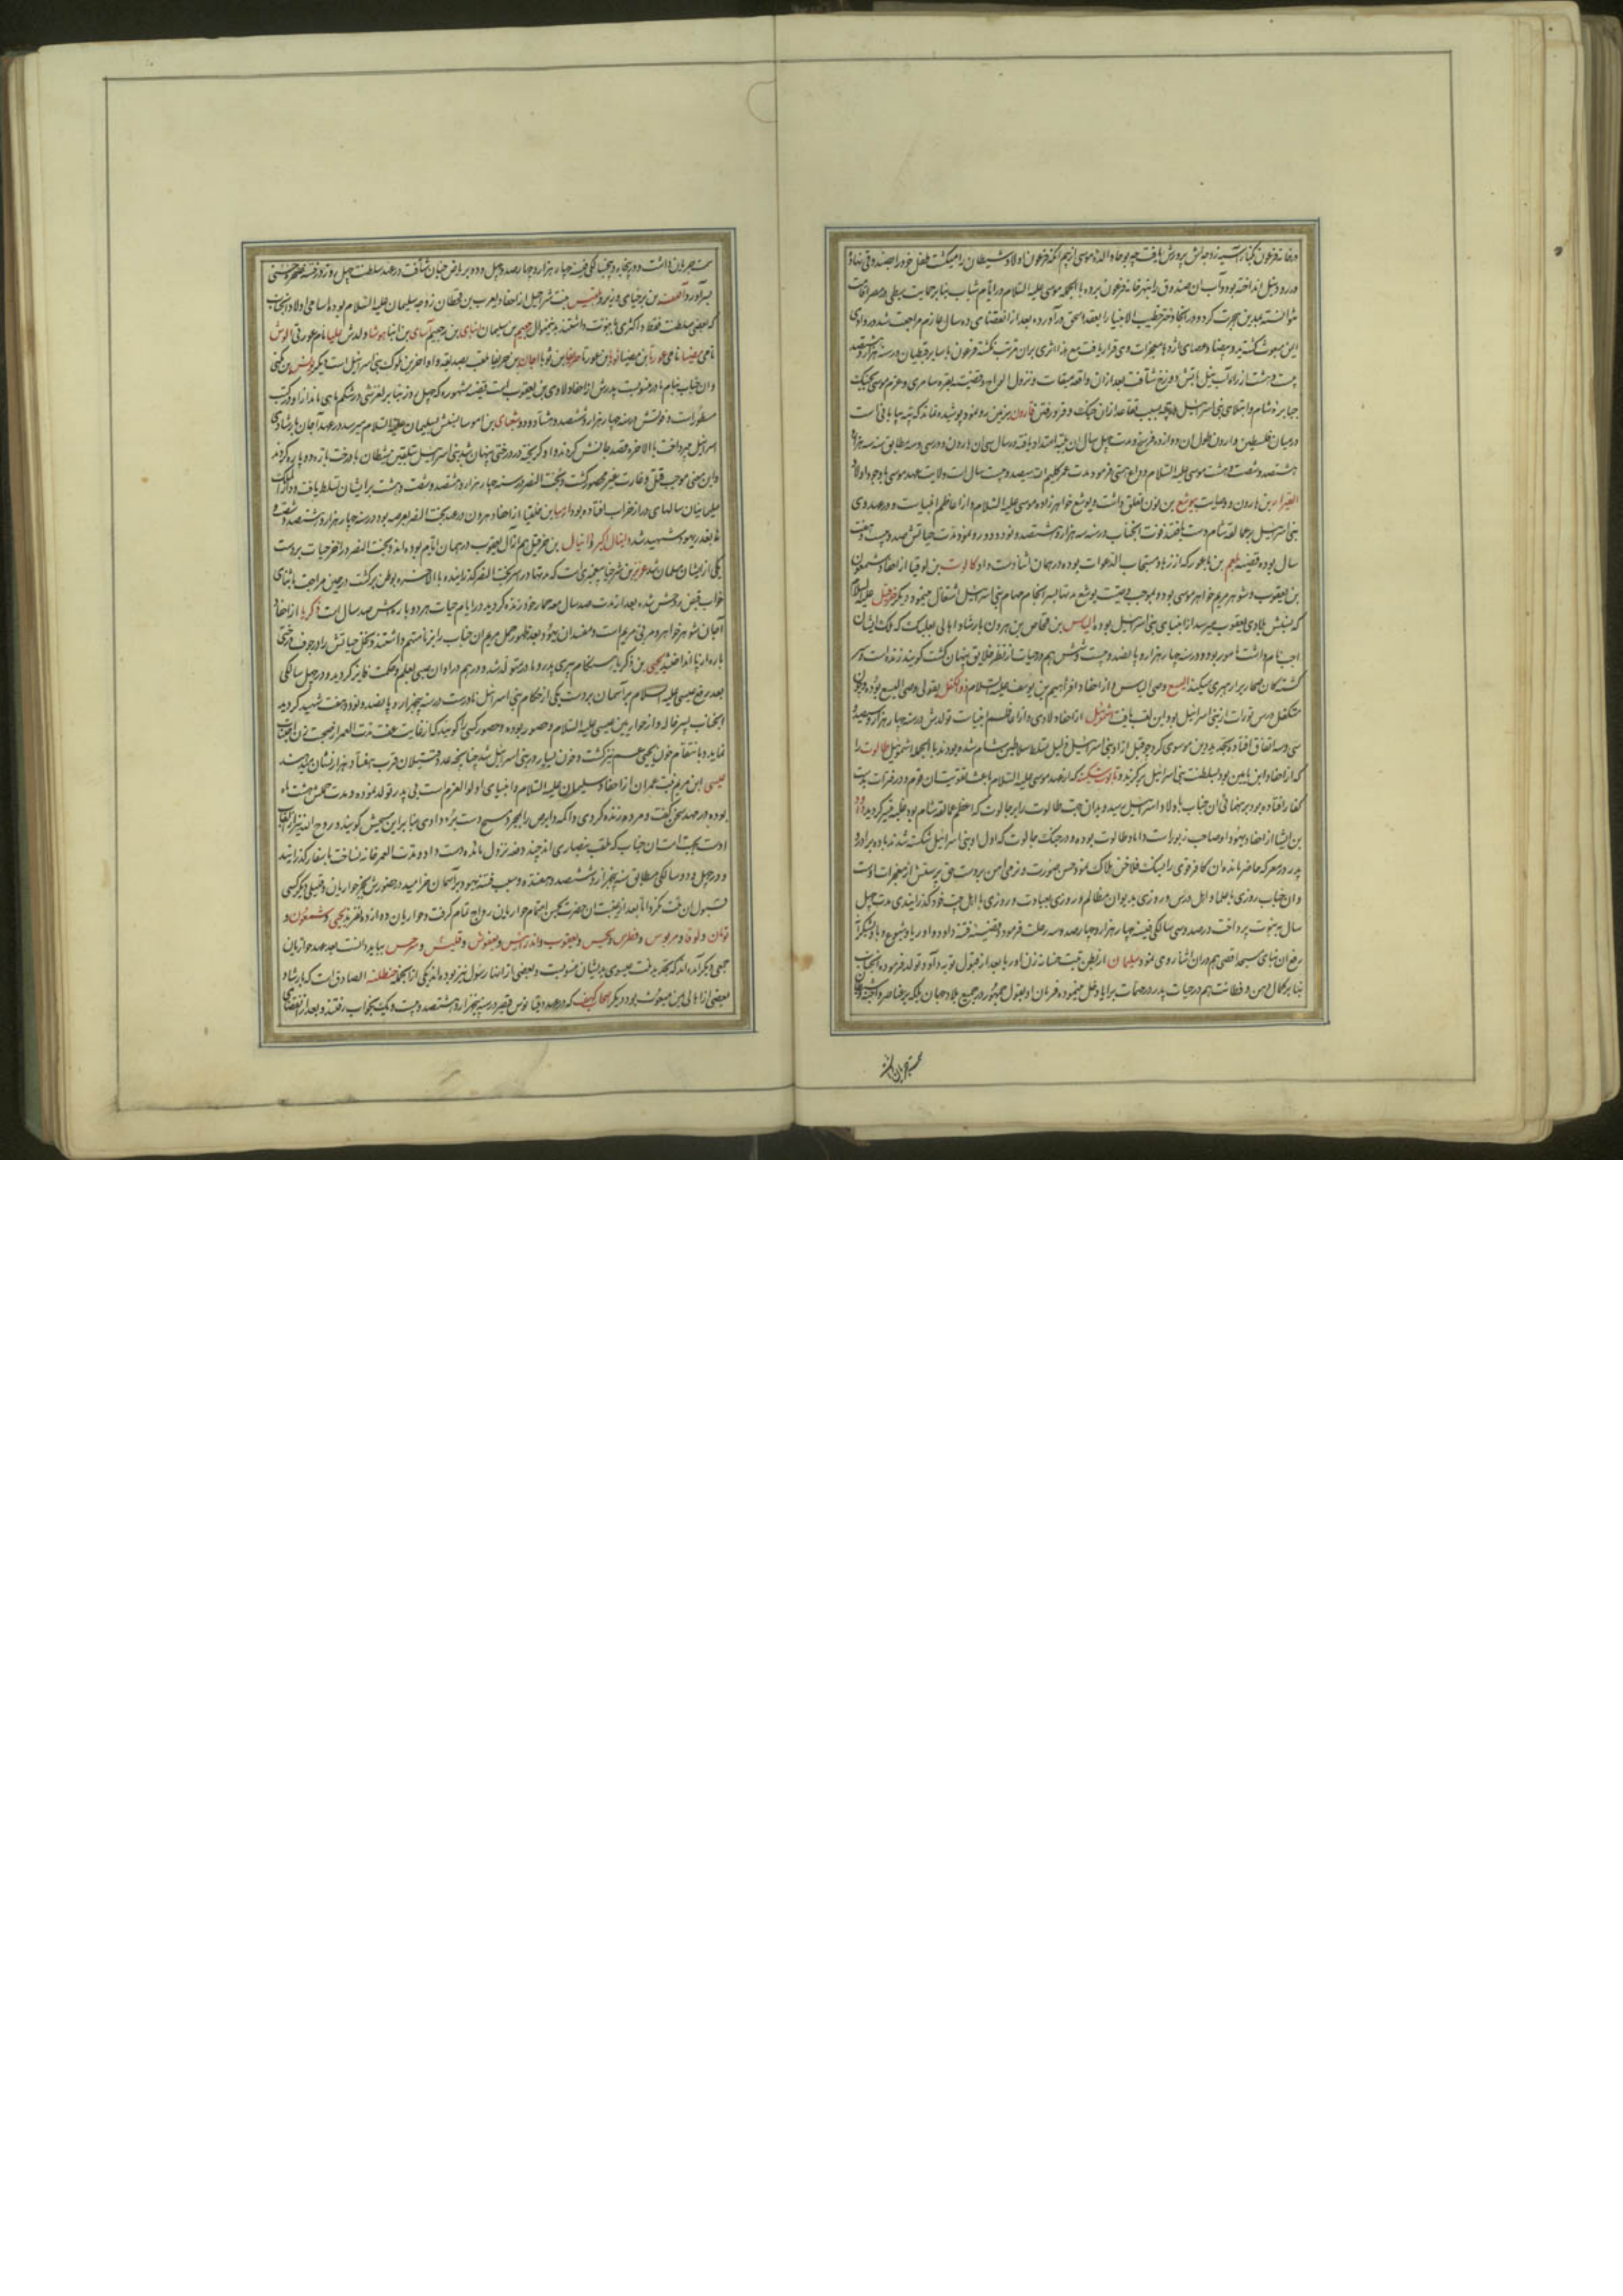 در خانه فرعون بکنار آسیه زوجه‌اش پرورش یافت چه یوحا والده موسی از بیم آنکه فرعون اولاد سبطیان را میکشت طفل خود را بصندوقی نهاده
در رود نیل انداخته بود و آب آن صندوق را بنهر خانه فرعون برده با الجمله موسی علیه السلام در ایام شباب بنا بر حمایت سبطی در مصر اقامت
نتوانسته بمدین هجرت کرد و در آنجا دختر خطیب الانبیا را بعقد الحق درآورده بعد از انقضای ده سال عازم مراجعت شد در وادی
ایمن مبعوث گشته ید و بیضا و عصای اژدها معجزات وی قرار یافت مع هذا اثری بر آن مترتب نگشته فرعون با سایر قبطیان در سنه هزار و
بیست و هشت از راه آب نیل بآتش دوزخ شتافت بعد از آن واقعه میقات و نزول الواح و قضیه بقره سامری و عزم موسی بجنگ
جبابره شام و ابتلای بنی اسرائیل بسبب تقاعد از آن جنگ و فرو رفتن قارون بزمین رو نمود پوشیده نماند که تیه بیابانی است
در میان فلسطین و اردن طول آن دوازده فرسخ و مدت چهل سال آن بلیه امتداد یافته در سال سی‌ان هارون و در سی و سه مطابق سنه سه هزار و
هشتصد و شصت و هشت موسی علیه السلام وداع هستی فرمود مدت عمر کلیم الله یکصد و بیست سال است ولایت عهد موسی با وجود اولاد
العیزار بن هارون و وصایت بیوشع بن نون تعلق داشت و یوشع خواهرزاده موسی علیه السلام و از اعاظم انبیاست و در عهد وی
بنی اسرائیل بر عمالقه شام دست یافتند فوت آنجناب در سنه سه هزار و هشتصد و نود و دو رو نمود مدت حیاتش صد و بیست و هفت
سال بوده قضیه بلعم بن باعور که از زهاد مستجاب الدعوات بوده در همان اثنا دست داد و کالوب بن یوقنا از احفاد شمعون
بن یعقوب و شوهر مریم خواهر موسی بود و بموجب وصیت یوشع مدتها بسرانجام مهام بنی اسرائیل اشتغال مینمود و دیگر حزقیل علیه السلام
که نسبش بلاوی یعقوب میرسد از انبیای بنی اسرائیل بوده الیاس بن فنحاص بن هرون بارشاد اهالی بعلبک که ملک ایشان
اجب نام داشت مامور بود و در سنه چهار هزار و پانصد و بیست و شش هم در حیات از نظر خلایق پنهان گشت گویند زنده است و سر
گشتگان صحاری را رهبری میکند الیسع وصی الیاس از احفاد افرائیم بن یوسف علیه السلام ذو الکفل بقولی وصی الیسع بوده و چون
متکفل درس تورات از بنی اسرائیل بود این لقب یافت شموئیل از احفاد لاوی و از اعاظم انبیاست تولدش در سنه چهار هزار و سیصد و
سی و سه اتفاق افتاده تجدید دین موسوی کرد چه قبل از او بنی اسرائیل ذلیل تسلط سلاطین شام شده بودند با الجمله اشموئیل طالوت را
که از احفاد ابن یامین بود بسلطنت بنی اسرائیل برگزید و تابوت سکینه که از عهد موسی علیه السلام باعث تقویت آن قوم و در فترات بدست
کفار افتاده بود برهنمائی آن جناب باولاد اسرائیل رسید و بدان جهت طالوت را بر جالوت که اعظم عمالقه شام بود غلبه میسر گردید داود
بن ایشا از احفاد یهودا و صاحب زبور است داماد طالوت بوده و در جنگ جالوت که اول او بنی اسرائیل شکسته شدند با ده برادر و
پدر در معرکه حاضر مانده آن کافر قوی را بسنگ فلاخن هلاک نمود حسن صورت و نرمی آهن بر دست حق پرستش از معجزات اوست
و آن جناب روزی با علما و اهل درس و روزی بدیوان مظالم و روزی بعبادت و روزی با اهل بیت خود گذرانیدی مدت چهل
سال به نبوت پرداخت در صد و سی سالگی فی سنه چهار هزار و چهارصد و سه رحلت فرمود و قضیه فتنه داود و اوریا و شیوع وبا و تشکر
رفع آن بنای مسجد اقصی هم در آن اثنا روی نمود سلیمان از بطن بتشبع حسنا نه زن اوریا بعد از قبول توبه داود تولد فرموده آنجناب
بنا بر کمال ذهن و فطانت هم در حیات پدر در مهمات برایا دخل مینمود فرمان او بقول جمهور در جمیع بلاد جهان بلکه بر عناصر و وحش و طیر
سمت جریان داشت و در پنجاه و پنج سالگی فی سنه چهار هزار و چهارصد و چهل و ده بریاض جنان شتافت در عهد سلطنت چهل روز در فتنه صخر جنی
بسر آورد و آصف بن برخیا وی وزیر و بلقیس بنت شراحیل از احفاد یعرب بن قحطان زوجه سلیمان علیه السلام بوده اسامی اولاد آنجناب
که بعضی سلطنت فقط و اکثری با نبوت داشتند بدینمنوال رحبعم بن سلیمان ابیای بن رحبعم آسای بن ابیا یوشا ولدش ایلیا نام عورتی الوش
نامی امصیا نامی عوزیا بن امصیا یوثام بن عوزیا حزقیا بن یوثا احاز بن حزقیا ملقب بصدیقه و او آخرین ملوک بنی اسرائیل است دیگر یونس بن متی
و آن جناب بنام مادر منسوبست پدرش از احفاد لاوی بن یعقوب است قصه مشهوره که چهل روز بنا بر لغزشی در شکم ماهی ماند از او در کتب
مسطور است و فوتش در سنه چهار هزار و ششصد و هشتاد و دو شعیای بن اموص نسبش بسلیمان علیه السلام میرسد در عهد آحاز بارشاد بنی
اسرائیل میپرداخت بالاخره قصد جانش کردند و او گریخته در درختی پنهان شد بنی اسرائیل بتلقین شیطان با درخت باره دو پاره کردند
و این معنی موجب قتل و غارت غیر محصور گشت و بخت النصر در سنه چهار هزار و هشتصد و شصت و هشت بر ایشان تسلط یافت و دار الملک
سلیمانیان سالهای دراز خراب افتاده بود ارمیا بن خلقیا از احفاد هرون در عهد بخت النصر بعرصه بود در سنه چهار هزار و هشتصد و شصت و
بغدر یهود شهید شد دانیال اکبر و دانیال بن حزقیل هم از آل یعقوب در همان ایام بوده‌اند و بخت النصر در آخر حیات بر دست
یکی از ایشان مسلمان شد عزیر بن شرخیا پیغمبری است که مدتها در اسر بخت النصر گذرانیده بالاخره بوطن برگشت در حین مراجعت باثنای
خواب قبض روحش شده بعد از مدت صد سال معه حمار خود زنده گردید در ایام حیات هر دو باره‌اش صد سال است زکریا از احفاد
آحاز شوهر خواهر و مربی مریم است و مفسدان یهود بعد ظهور حمل مریم آن جناب را بزنا متهم داشتند و نخل حیاتش را در جوف درختی
باره از پا انداختند یحیی بن زکریا بهنگام پیری پدر و مادر متولد شد و در هم در اوان صبی بعلم و حکمت فایز گردیده و در چهل سالگی
بعد رفع عیسی علیه السلام بر آسمان بر دست یکی از حکام بنی اسرائیل نادرست در سنه پنجهزار و پانصد و نود و هفت شهید گردید
آنجناب پسر خاله و از حواریین عیسی علیه السلام و حصور بوده و حصور کسی را گویند که از غایت عفت مدت العمر از صحبت زن اجتناب
نماید و بانتقام خون یحیی عیسی نیز گشت و خون بسیار در بنی اسرائیل شد چنانچه عدد قتیلان قرب هفتاد هزار نشان میدهند
عیسی ابن مریم بنت عمران از احفاد سلیمان علیه السلام و انبیای اولو العزم است بی پدر تولد نموده و مدت حملش هشت ماه
بوده در مهد سخن گفت و مرده زنده کردی و اکمه و ابرص را بمجرد مسح دست برء دادی بنا بر این مسیحش گویند و روح الله نیز از القاب
اوست بجهت امت آن جناب که ملقب بنصاری اند چند دفعه نزول مائده دست داد و مدت العمر خانه نساخت باسفار گذرانید
و در چهل و دو سالگی مطابق سنه پنجهزار و ششصد و هفده بسبب فتنه یهود بر آسمان خرامید در حضورش بجز حواریان و قلیلی دیگر کسی
قبول آن ملت نکرد اما بعد از غیبت آن حضرت بحسن اهتمام حواریان رواج تمام گرفت و حواریان دوازده نفرند یحیی و شمعون و
تومان و لوقا و مریوس و فطرس و یحنس و یعقوب و اندرائیس و یعقوش و فلیپش و سرجس بباید دانست بعد عهد حواریان
جمعی دیگر آمده‌اند که تجدید ملت عیسوی بدیشان منسوبست و بعضی از آنها رسول نیز بوده‌اند یکی از آنجمله حنظله الصادق است که بارشاد
بعضی از اهالی یمن مبعوث بود دیگر اصحاب کهف که در عهد دقیانوس قیصر در سنه پنجهزار و هشتصد و بیست و یک بخواب رفتند و بعد از انقضای